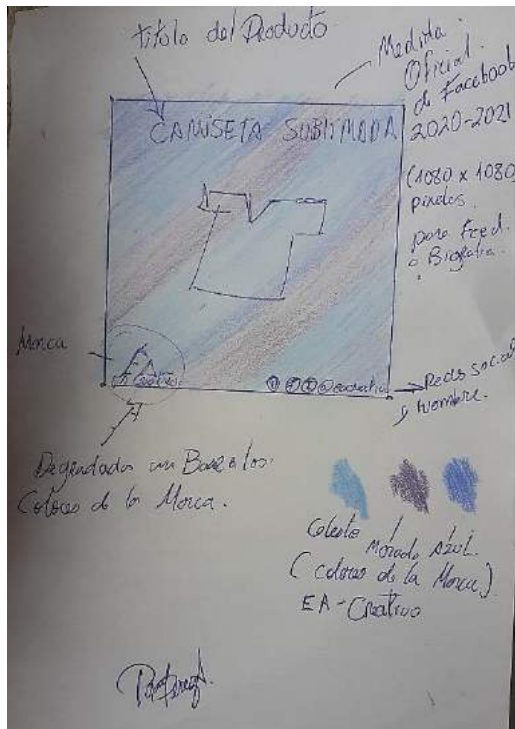 titulo del Producto
Medida
Oficial
de Facebook
2020-2021
(1080 x 1080)
pixeles
para Feed
o Biografia.
CAMISETA SUBLIMADA
Marca
Redes social
y Nombre.
Degradados en Base a los
Colores de la Marca.
Celeste
Morado Azul.
(Colores de la Marca)
EA-Creativo